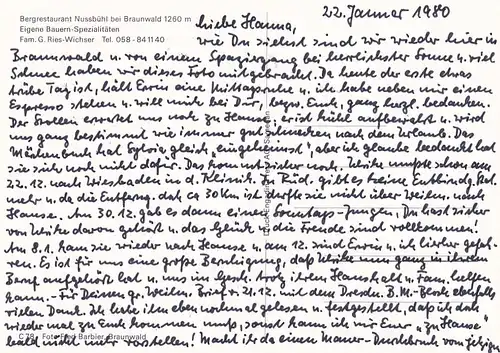 Bergrestaurant Nussbühl bei Braunwald 1260 m
Eigene Bauern-Spezialitäten
Fam. G. Ries-Wichser Tel. 058 - 84 11 40
22. Januar 1980
Liebe Hanna,
wie Du siehst sind wir wieder hier in
Braunwald u. von einem Spaziergang bei herrlichster Sonne u. viel
Schnee haben wir dieses Foto mitgebracht. Da heute der erste etwas
trübe Tag ist, hält Erwin eine Mittagsruhe u. ich habe neben mir einen
Espresso stehen u. will mich bei Dir, bezw. Euch, ganz herzl. bedanken.
Der Stollen erwartet uns noch zu Hause, er ist kühl aufbewahrt u. wird
uns ganz bestimmt wie immer gut schmecken nach dem Urlaub. Das
Märchenbuch hat Sylvia gleich "eingeheimst", aber ich glaube bedankt hat
sie sich noch nicht dafür. Das kommt sicher noch. Ulrike mußte schon am
22.12. nach Wiesbaden in d. Klinik. In Rüd. gibt es keine Entbindg. Stat.
mehr u. da die Entferng. doch ca 30 Km ist durfte sie nicht über Weihn. nach
Hause. Am 30.12. gab es dann einen Sonntags-Jungen. Du hast sicher
von Ulrike davon gehört u. das Glück u. die Freude sind vollkommen!
Am 8.1. kam sie wieder nach Hause u. am 12. sind Erwin u. ich hierher gefah-
ren. Es ist für uns eine große Beruhigung, daß Ulrike nun ganz in ihrem
Beruf aufgehört hat u. uns im Gesch. trotz ihrem Haushalt u. Fam. helfen
kann. - Für Deinen gr. Weihn. Brief v. 21.12. mit dem Dresdn. B.M.-Block ebenfalls
vielen Dank. Ich habe ihn eben nochmal gelesen u. festgestellt, daß ich doch
wieder mal zu Euch kommen muß, sonst kann ich mir Euer "zu Hause"
bald nicht mehr vorstellen! Macht ihr da einen Mauer-Durchbruch vom jetzigen
C 78 Foto Fred Barbier, Braunwald